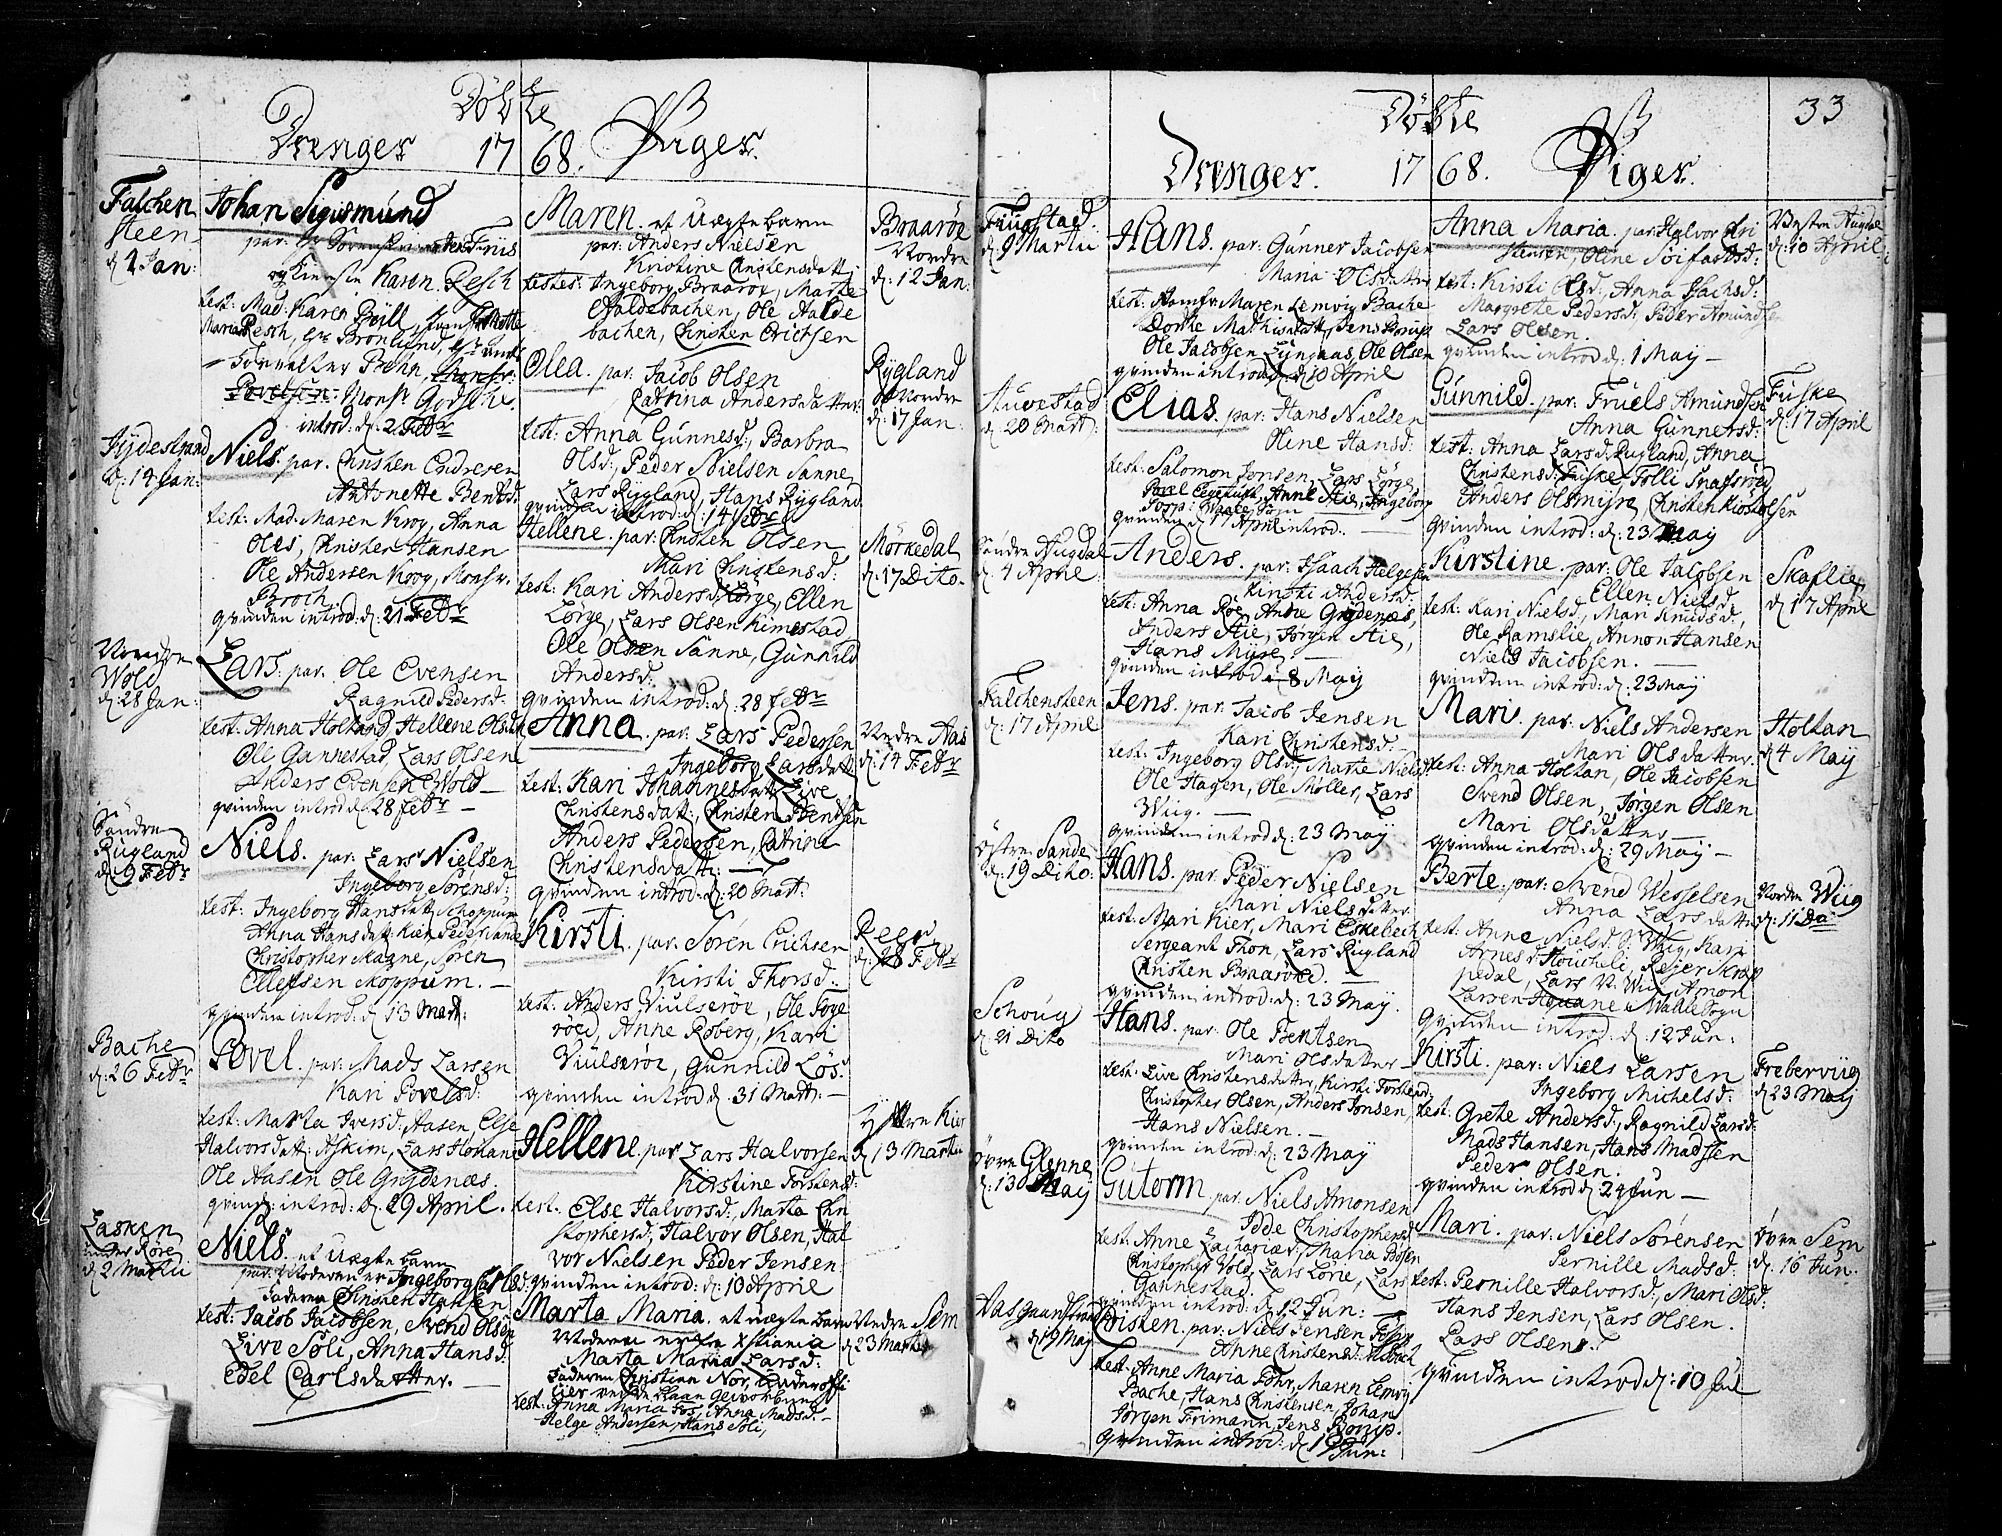 Döbte
Drenger 17 68. Piger.
Falchen
steen
d 1 Jan:
Johan Sigismund
par:
Karen Resch
test: Mad: Karen
Maria Resch, Hr Brønlund,
Forvalter Behn,
Povelsen Monsr Godsche.
introd: d: 2 Febr
Jydestrand
d: 14 Jan:
Niels. par. Christen Endresen
Antonette Bentsd:
test: Mad: Maren Krog, Anna
Oles, Christen Hansen
Ole Andersen Krog, Monsr.
Broch.
qvinden introd: d: 21 Febr
Nordre
Wold
d: 28 Jan:
Lars. par. Ole Evensen
Ragnild Pedersd:
test: Anna Holtand, Hellene Olsdatt
Ole Gannestad, Lars Olsen
Anders Evensen Wold —
qvinden introd: d: 28 Febr —
Søndre
Rugland
d: 9 Febr
Niels. par: Lars Nielsen
Ingeborg Sørensd:
test: Ingeborg Hansdatt Schoppum
Anna Hansdatt: Kier, Peder
Christopher Magne, Søren
Ellefsen Skoppum. —
qvinden introd: d 13 Mart:
Bache
d: 26 Febr
Povel. par: Mads Larsen
Kari Povelsd:
test: Marta Iversd: Aasen, Else
Halvorsdatt: Askim, Lars Honane
Ole Aasen Ole Grydenæs.
qvind: introd: d. 29 April.
Lasken
under Røre
d 2 Martii
Niels. et Uægte barn
par. Moderen er Ingeborg Carlsd:
Faderen Christen Hansen
test: Jacob Jacobsen, Svend Olsen
Live Soli, Anna Hansd:
Edel Carlsdatter. —
Maren. et Uægte barn
par: Anders Nielsen
Kristine Christensdatt:
testes: Ingeborg Braarøe, Marte
Haldebachen, Ole Halde
bachen, Christen Erichsen
Braarøe
Nordre
d: 12 Jan:
Olea. par. Jacob Olsen
Catrina Andersdatter
test: Anna Gunnesd:, Barbra
Olsd:, Peder Nielsen Sanne,
Lars Rygland, Hans Rygland
qvinden introd: d: 14 Febr
Rygland
Nordre
d: 17 Jan:
Hellene. par: Christen Olsen
Mari Christensd:
test: Kari Andersd: Lørge, Ellen
Lørge, Lars Olsen Kimestad
Ole Olsen Sanne, Gunnild
Andersd:
qvinden introd: d: 28 Febr
Mørkedal
d: 17 Dito.
Anna. par: Lars Pedersen
Ingeborg Larsdatt
test: Kari Johannesdatt, Live
Christensdatt:, Christen Bentsen
Anders Pedersen, Catrina
Christensdatt: —
qvinden introd: d: 20 Mart:
Nedre Aas
d: 14 Febr
Kirsti. par: Søren Erichsen
Kirsti Thorsd:
test: Anders Viulserøe, Ole
røed, Anne Roberg, Kari
Viulserøe, Gunnild Løs:
qvinden introd: d 31 Mart: —
d: 28 Febr
Hellene. par Lars Halvorsen
Kirstine Torstensd:
test. Else Halvorsd:, Marta Chri
stophersd:, Halvor Olsen, Hal
vor Nielsen Peder Jensen
qvinden introd: d: 10 April
Kier
d 13 Martii
Marta Maria. et uægte barn
Moderen er fra Xtiania
Marta Maria Larsd:
Faderen Christian Nor,
test: Anna Maria Fos, Anna Madsd: —
Helge Andersen, Hans Soli,
Nedre Sem
d 23 Martii
Döbte 33
Drenger. 17 68. Piger.
d 9 Martii
Hans. par: Gunner Jacobsen
Maria Olsdatter
test: Jomfr: Maren Lemvig Bache
Dorthe Mathisdatt, Jens Borup
Ole Jacobsen Lyngaas, Ole Olsen
qvinden introd: d: 10 April
Stuvestad
d: 20 Mart:
Elias. par: Hans Nielsen
Oline Hansd:
test: Salomon Jonsen, Lars Lørge,
Povel Anne Aie, Ingeborg
qvinden d 17 April introd: —
Søndre Augdal
d: 4 April
Anders. par: Isaach Helgesen
Kirsti Andersd:
test: Anna Røe, Anne Grydenæs,
Anders Aie, Jørgen Aie,
Hans Myre —
qvinden introd: 8 May
Falchensteen
d: 17 April
Jens. par: Jacob Jensen
Kari Christensd:
test: Ingeborg Olsd: Marte Nielsd
Ole Hagen, Ole Møller, Lars
Wiig. —
qvinden introd: d: 23 May
østre Sande
d: 19 Dito.
Hans. par: Peder Nielsen
Mari Nielsdatter
test: Mari Kier, Mari Eskebech
Sergeant Thon, Lars Rugland
Christen Braarøed. —
qvinden introd: d: 23 May.
Schoug
d: 21 Dito
Hans. par: Ole Bentsen
Mari Olsdatter —
test: Live Christensdatter, Kirsti
Christopher Olsen, Anders Jonsen,
Hans Nielsen. —
qvinden introd: d: 23 May
øvre Glenne
d: 13 May
Gutorm par: Niels Amonsen
Idde Christophersd
test: Anne Zachariæ: Maria Bosen
Christopher Vold, Lars Lørie, Lars
Gannestad:
qvinden introd: d 12 Jun: —
d 19 May
Christen. par: Niels Jensen
Anne Christensd:
test: Anne Maria Fohr, Maren Lemvig
Bache, Hans Christensen, Johan
Jørgen Frimann, Jens Borup.
qvinden introd: d 19 Jun:
Anna Maria. par: Halvor Kri
stensen, Oline Siifastsd:
test: Kirsti Olsd:, Anna Isachsd:
Margrete Pedersd: Peder Amundsen
Lars Olsen.
qvinden introd: d: 1 May —
Vestre Augdal
d: 10 April
Gunnild. par: Truels Amundsen
Anna Gunnersd:
test: Anna Larsd: Rugland, Anna
Christensd: Fuske, Tolli
Anders Olsmyre, Christen Kiøstolsen
qvinden introd: d: 23 May
Fuske
d: 17 April
Kirstine. par: Ole Jacobsen
Ellen Nielsd.
test: Kari Nielsd:, Mari Knudsd:,
Ole Ramslie, Annon Hansen
Niels Jacobsen. —
qvinden introd: d: 23 May
Skaflie
d 17 April
Mari. par: Niels Andersen
Mari Olsdatter.
test: Anna Holtan, Ole Jacobsen
Svend Olsen, Jørgen Olsen
Mari Olsdatter —
qvinden introd: d: 29 May —
Holtan
d 4 May
Berte. par: Svend Wesselsen
Anna Larsdatter
test: Anne Nielsd: V: Wiig, Kari
Arnesd Houcheli, Rejer Skrap
pedal, Lars V: Wiig Amon
Larsen
qvinden introd: d: 12 Jun:
Nordre Wiig
d: 11 Do
Kirsti. par: Niels Larsen
Ingeborg Michelsd:
test: Grete Andersd:, Ragnild Larsd:
Mads Hansen, Hans Madsen
Peder Olsen.
qvinden introd: d 24 Jun —
Freberviig
d 23 May
Mari. par: Niels Sørensen
Pernille Madsd:
test: Pernille Halvorsd:, Mari Olsd:
Hans Jensen, Lars Olsen.
Lars Olsen. —
qvinden introd d: 10 Jul
øvre Sem
d: 16 Jun.